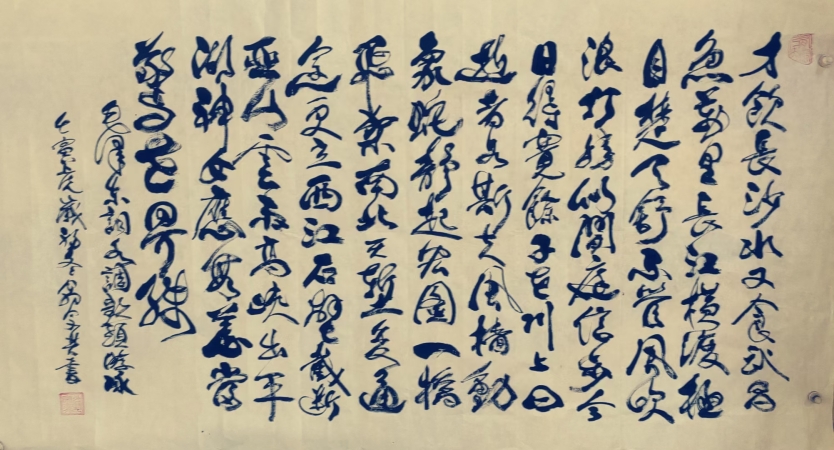 才飲長沙水又食武昌
魚萬里長江橫渡極
目楚天舒不管風吹
浪打勝似閒庭信步今
日得寬餘子在川上曰
逝者如斯夫風檣動
龜蛇靜起宏圖一橋
飛架南北天塹變通
途更立西江石壁截斷
巫山雲雨高峽出平
湖神女應無恙當
驚世界殊
毛澤東詞水調歌頭游泳
壬寅虎歲初冬書